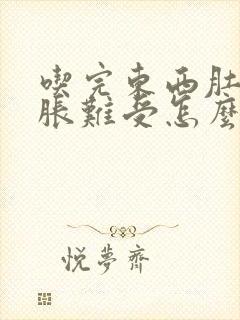 喫完東西肚
脹難受怎麼
悅夢齋